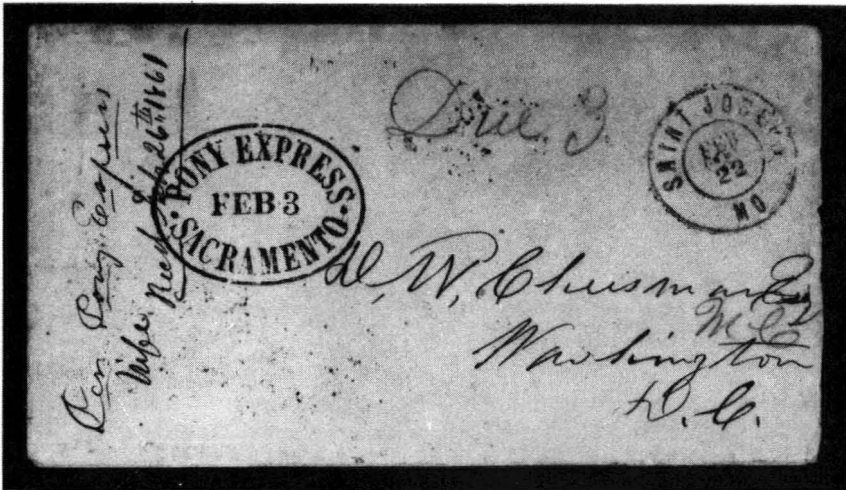 Per Pony Express
Wife Recd Feb 26th 1861
PONY EXPRESS
FEB 3
SACRAMENTO
Due 3
SAINT JOSEPH
FEB
22
MO
D, W, Cheesman Esq
Washington
D. C.